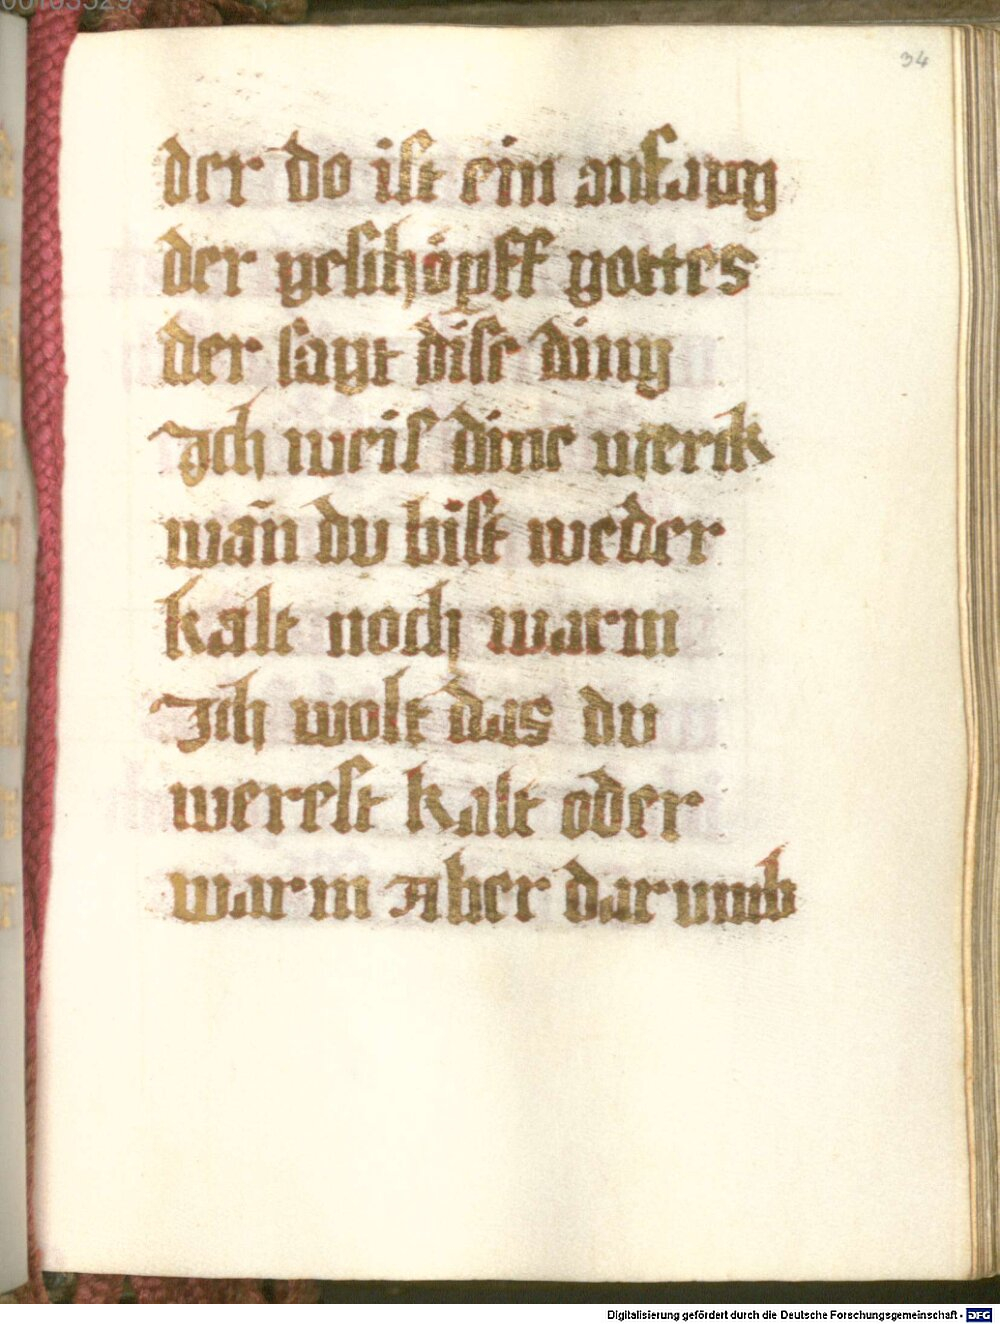 34
der do ist ein anfang
der geschöpff gottes
der sagt dise ding
Ich weis dine werck
wan̄ du bist weder
kalt noch warm
Ich wolt das du
werest kalt oder
warm Aber darumb
Digitalisierung gefördert durch die Deutsche Forschungsgemeinschaft - DFG